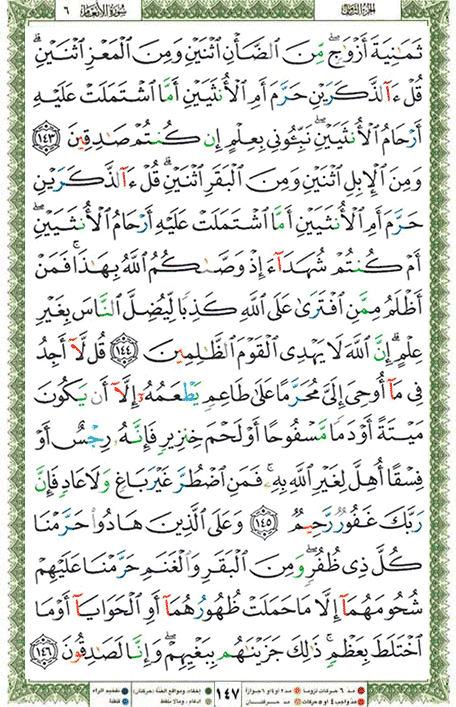 الجزء الثامن ٦ سورة الأنعام
ثَمَٰنِيَةَ أَزْوَٰجٍ ۖ مِّنَ ٱلضَّأْنِ ٱثْنَيْنِ وَمِنَ ٱلْمَعْزِ ٱثْنَيْنِ ۗ
قُلْ ءَآلذَّكَرَيْنِ حَرَّمَ أَمِ ٱلْأُنثَيَيْنِ أَمَّا ٱشْتَمَلَتْ عَلَيْهِ
أَرْحَامُ ٱلْأُنثَيَيْنِ ۖ نَبِّـُٔونِى بِعِلْمٍ إِن كُنتُمْ صَٰدِقِينَ ١٤٣
وَمِنَ ٱلْإِبِلِ ٱثْنَيْنِ وَمِنَ ٱلْبَقَرِ ٱثْنَيْنِ ۗ قُلْ ءَآلذَّكَرَيْنِ
حَرَّمَ أَمِ ٱلْأُنثَيَيْنِ أَمَّا ٱشْتَمَلَتْ عَلَيْهِ أَرْحَامُ ٱلْأُنثَيَيْنِ ۖ
أَمْ كُنتُمْ شُهَدَآءَ إِذْ وَصَّىٰكُمُ ٱللَّهُ بِهَٰذَا ۚ فَمَنْ
أَظْلَمُ مِمَّنِ ٱفْتَرَىٰ عَلَى ٱللَّهِ كَذِبًا لِّيُضِلَّ ٱلنَّاسَ بِغَيْرِ
عِلْمٍ ۗ إِنَّ ٱللَّهَ لَا يَهْدِى ٱلْقَوْمَ ٱلظَّٰلِمِينَ ١٤٤ قُل لَّآ أَجِدُ
فِى مَآ أُوحِىَ إِلَىَّ مُحَرَّمًا عَلَىٰ طَاعِمٍ يَطْعَمُهُۥٓ إِلَّآ أَن يَكُونَ
مَيْتَةً أَوْ دَمًا مَّسْفُوحًا أَوْ لَحْمَ خِنزِيرٍ فَإِنَّهُۥ رِجْسٌ أَوْ
فِسْقًا أُهِلَّ لِغَيْرِ ٱللَّهِ بِهِۦ ۚ فَمَنِ ٱضْطُرَّ غَيْرَ بَاغٍ وَلَا عَادٍ فَإِنَّ
رَبَّكَ غَفُورٌ رَّحِيمٌ ١٤٥ وَعَلَى ٱلَّذِينَ هَادُوا۟ حَرَّمْنَا
كُلَّ ذِى ظُفُرٍ ۖ وَمِنَ ٱلْبَقَرِ وَٱلْغَنَمِ حَرَّمْنَا عَلَيْهِمْ
شُحُومَهُمَآ إِلَّا مَا حَمَلَتْ ظُهُورُهُمَآ أَوِ ٱلْحَوَايَآ أَوْ مَا
ٱخْتَلَطَ بِعَظْمٍ ۚ ذَٰلِكَ جَزَيْنَٰهُم بِبَغْيِهِمْ ۖ وَإِنَّا لَصَٰدِقُونَ ١٤٦
مد ٦ حركات لزوماً مد ٢ أو ٤ أو ٦ جوازاً ١٤٧ إخفاء، ومواقع الغنة (حركتان) تفخيم الراء
مد واجب ٤ أو ٥ حركات مد حركتان إدغام، وما لا يلفظ قلقلة